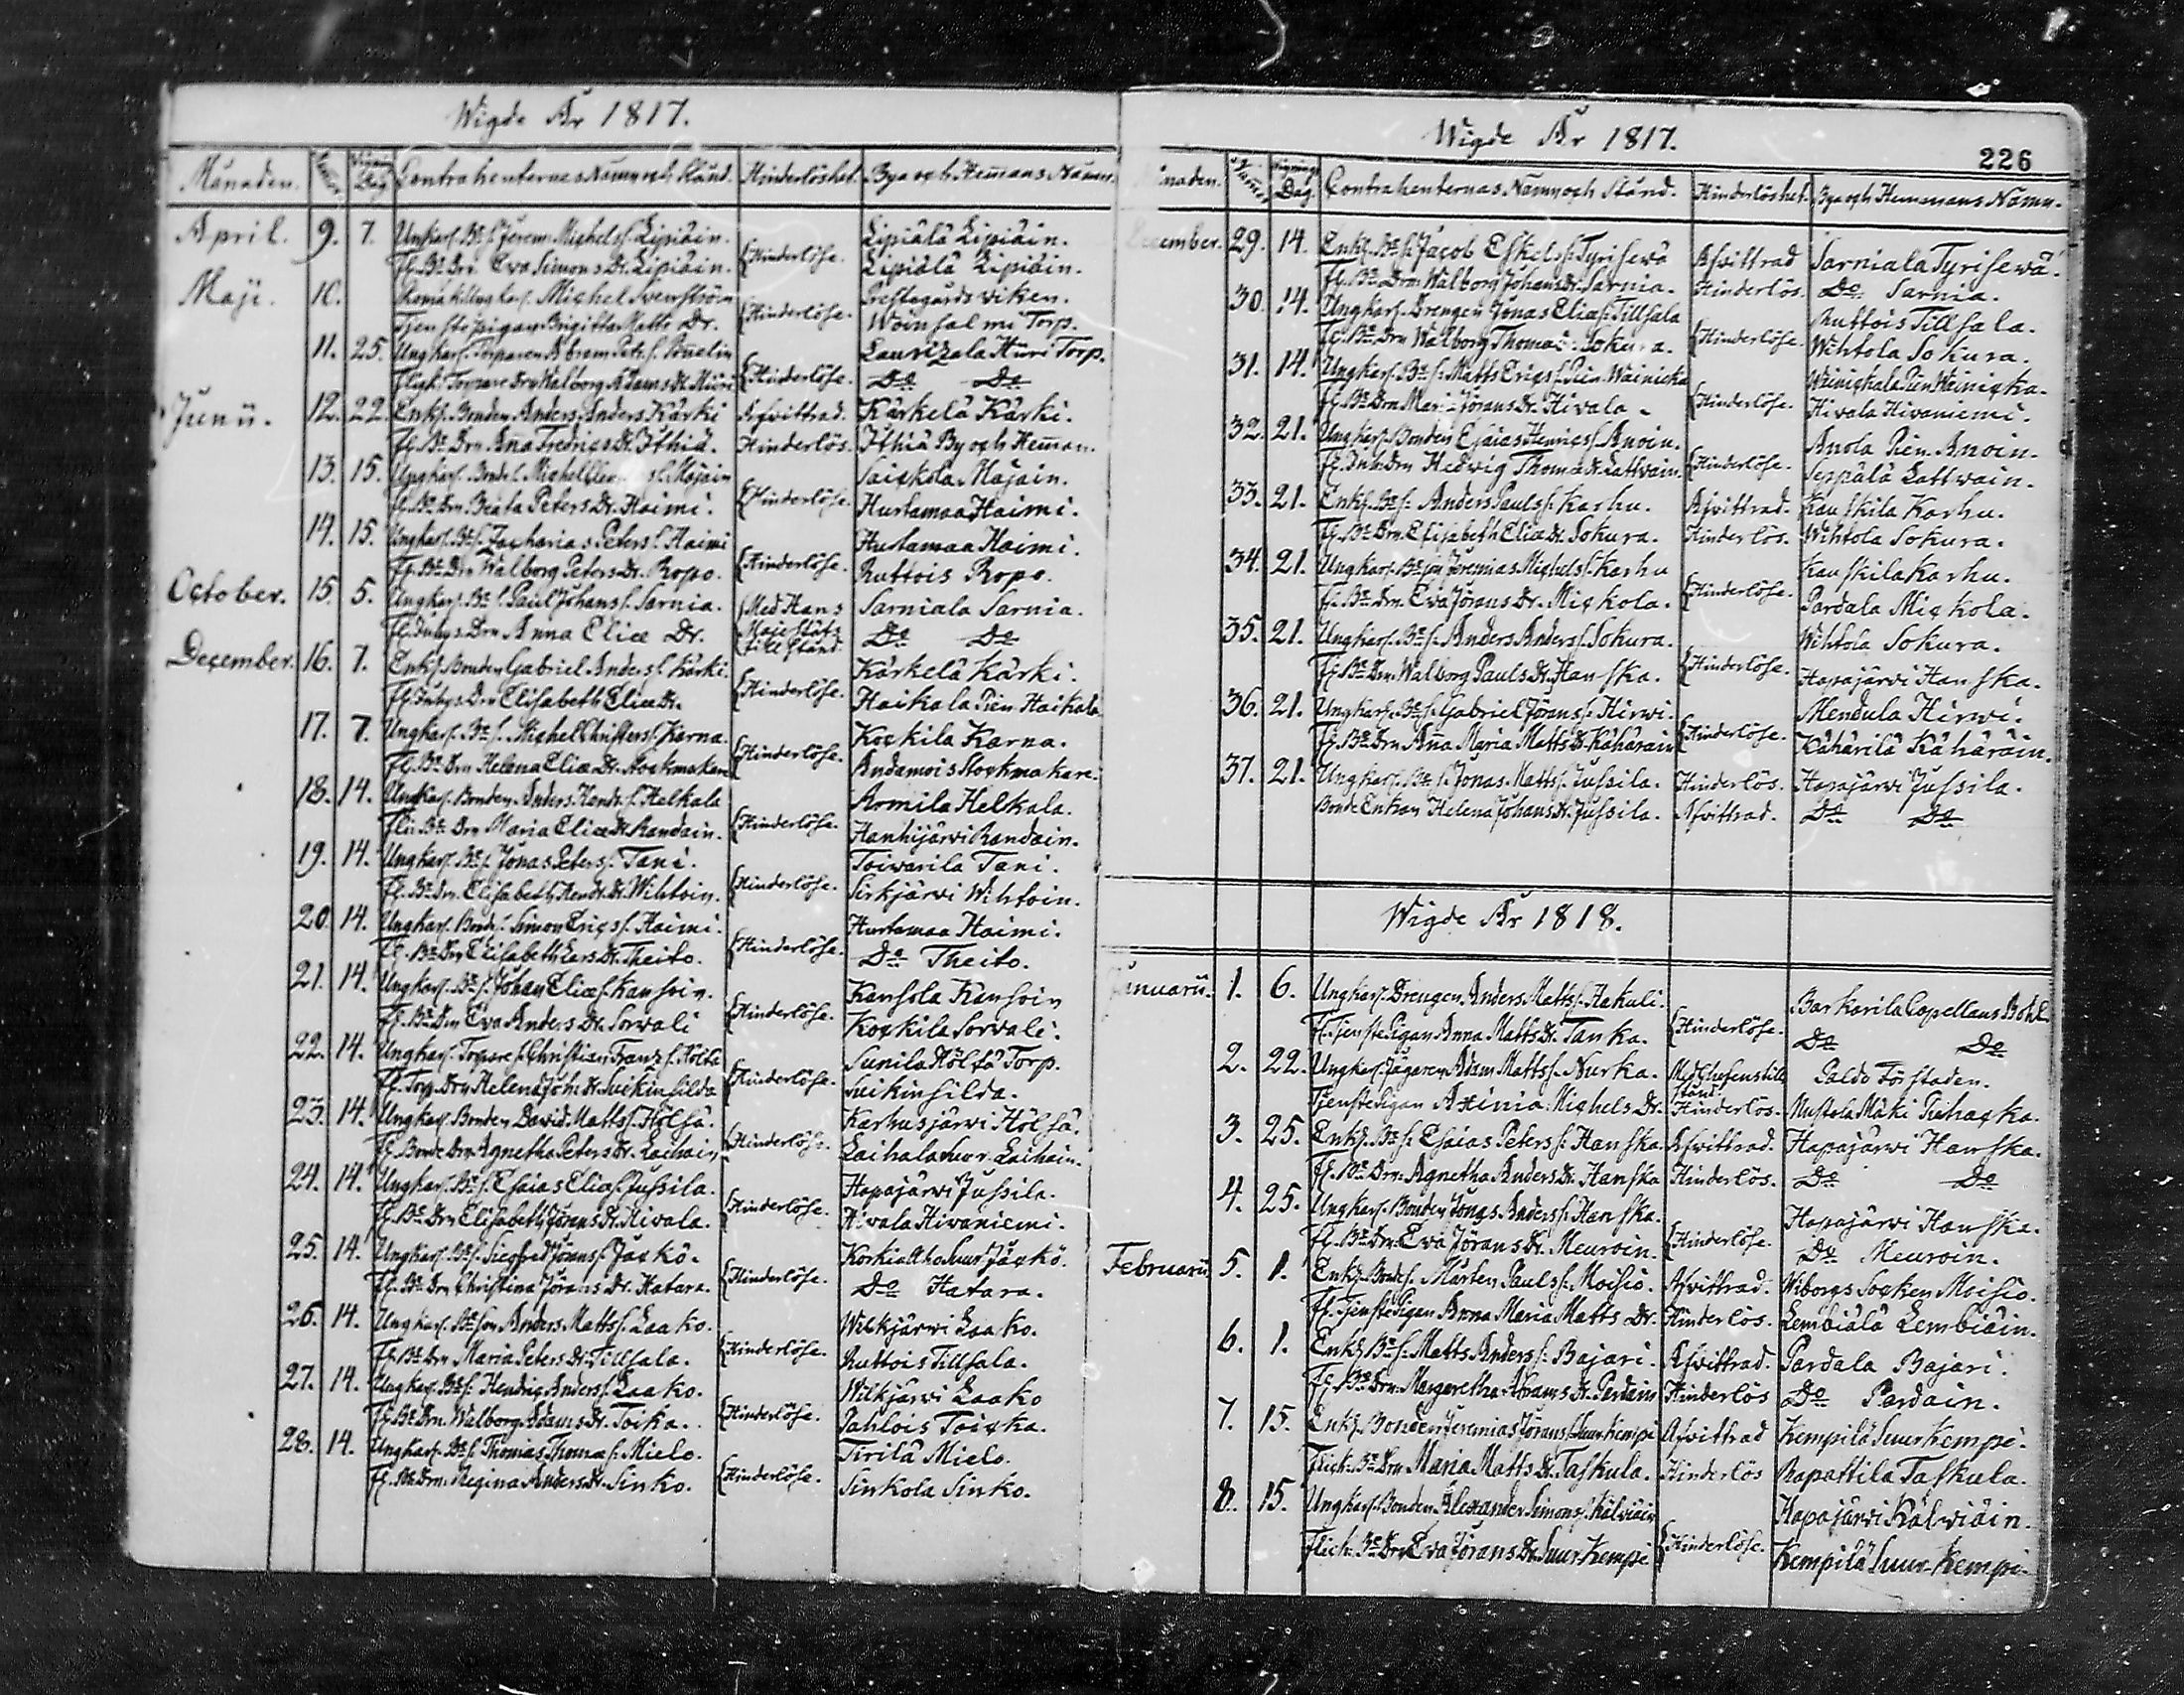 Wigde År 1817.
Månaden. Dag Contrahenternas Namn och Stånd. Hinderlöshet. Bya och Hemmans Namn.
April. 9. 7. Ungkarl. Be s. Jerem. Michelss. Lipiäin. Hinderlöse. Lipiälä Lipiäin.
Fl. Be Drn Eva Simons Dr. Lipiäin. Lipiälä Lipiäin.
Maji. 10. Michel Svenström Hinderlöse. Prestegårds wiken.
Tjenstepigan Brigitta Matts Dr. Woinsalmi Torp.
11. 25. Ungkarl. Torparen Abram Petr. s. Hinderlöse. Lavrizala Hüri Torp.
Flick. Torpare Drn Walborg Adams Dr. Do Do
Junii. 12. 22. Enkl. Bonden Anders Anders Kärki Afwittrad. Kärkelä Kärki.
Fl. Be Drn Ana Fredrics Dr. Ithiä. Hinderlös. Ithiä By och Heman.
13. 15. Ungkarl. Bonde s. Michel s. Majain Hinderlöse. Saickola Majain.
Fl. Be Drn Beata Peters Dr. Haimi. Hurtamaa Haimi.
14. 15. Ungkarl. Be s. Zacharias Peters s. Haimi Hinderlöse. Hurtamaa Haimi.
Fl. Be Drn Walborg Peters Dr. Ropo. Ruttois Ropo.
October. 15. 5. Ungkarl. Be s. Paul Johans s. Sarnia. Med Hans Sarniala Sarnia.
Fl. Inhys. Drn Anna Eliæ Dr. Majestäts tillstånd. Do Do
December. 16. 7. Enkl. Bonden Gabriel Anders s. Kärki. Hinderlöse. Kärkelä Kärki.
Fl. Inhys Drn Elisabeth Eliæ Dr. Haikala Pien Haikala
17. 7. Ungkarl. Be s. Michel Christers s. Karna. Hinderlöse. Kockila Karna.
Fl. Be Drn Helena Eliæ Dr. Stockmakare Andamois Stockmakare.
18. 14. Ungkarl. Bonden Anders Hendr. s. Helkala Hinderlöse. Armila Helkala.
Flic. Be Drn Maria Eliæ Dr. Randain. Hanhijärwi Randain.
19. 14. Ungkarl. Be s. Jonas Peters s. Tani. Hinderlöse. Toiwarila Tani.
Fl. Be Drn. Elisabeth Hendr. Dr. Wihtoin. Sirkjärwi Wihtoin.
20. 14. Ungkarl. Bonde s. Simon Erics s. Haimi. Hinderlöse. Hurtamaa Haimi.
Fl. Be Drn Elisabeth Lars Dr. Theito. Do Theito.
21. 14. Ungkarl. Be s. Johan Elias s. Kansoin. Hinderlöse. Kansola Kansoin
Fl. Be Drn Eva Anders Dr. Sorvali Kockila Sorvali.
22. 14. Ungkarl. Torpare s. Christian Franz s. Höltä Hinderlöse. Sunila Höltä Torp.
Fl. Torp. Drn Helena Joh. Dr. Suikinsilda Suikinsilda.
23. 14. Ungkarl. Bonden David Matts s. Hölsä. Hinderlöse. Karhusjärwi Hölsä.
Fl. Bonde Drn Agnetha Peters Dr. Laihain Laihala Suur Laihain.
24. 14. Ungkarl. Be s. Esaias Elias s. Jussila. Hinderlöse. Hapajärwi Jussila.
Fl. Be Drn Elisabeth Jörans Dr. Hivala. Hivala Hivaniemi.
25. 14. Ungkarl. Be s. Siegfred Jörans s. Jäckö. Hinderlöse. Korkia Aho Suur Jäckö.
Fl. Be Drn Christina Jörans Dr. Hatara. Do Hatara.
26. 14. Ungkarl. Be son Anders Matts s. Laako. Hinderlöse. Wilkjärwi Laako.
Fl. Be Drn Maria Peters Dr. Tillsala. Ruttois Tillsala.
27. 14. Ungkarl. Be s. Hendric Anders s. Laako. Hinderlöse. Wilkjärwi Laako
Fl. Be Drn. Walborg Adams Dr. Toika. Pahlois Toicka.
28. 14. Ungkarl. Be s. Thomas Thomæ s. Mielo. Hinderlöse. Tirilä Mielo.
Fl. Be Drn. Regina Anders Dr. Sinko. Sinkola Sinko.
Wigde År 1817.
226
Dag. Contrahenternas Namn och Stånd. Hinderlöshet. Bya och Hemmans Namn.
December. 29. 14. Enkl. Be s. Jacob Eskels s. Tyrisewä Afwittrad Sarniala Tyrisewä.
Fl. Be Drn Walborg Johans Dr. Sarnia. Hinderlös. Do Sarnia.
30. 14. Ungkarl. Drengen Jonas Elias s. Tillsala Hinderlöse. Ruttois Tillsala.
Fl. Be Drn Walborg Thomæ Sokura. Wihtola Sokura.
31. 14. Ungkarl. Be s. Matts Erics s. Pien Wainicka Hinderlöse. Wainickala Pien Wainicka.
Fl. Be Drn Maria Jörans Dr. Hivala. Hivala Hivaniemi.
32. 21. Ungkarl. Bonden Esaias Henrics s. Anoin. Hinderlöse. Anola Pien Anoin.
Fl. Inh. Drn Hedwig Thomæ Dr. Lattwain. Seppälä Lattwain.
33. 21. Enkl. Be s. Anders Pauls s. Karhu. Afwittrad. Kauskila Karhu.
Fl. Be Drn Elisabeth Eliæ Dr. Sokura. Hinderlös. Wihtola Sokura.
34. 21. Ungkarl. Be son Jeremias Michels s. Karhu Hinderlöse. Kauskila Karhu.
Fl. Be Drn. Eva Jörans Dr. Mickola. Pardala Mickola.
35. 21. Ungkarl. Be s. Anders Anders s. Sokura. Hinderlöse. Wihtola Sokura.
Fl. Be Drn. Walborg Pauls Dr. Hanska. Hapajärwi Hanska.
36. 21. Ungkarl. Be s. Gabriel Jörans s. Hirwi. Hinderlöse. Mendula Hirwi.
Fl. Be Drn Anna Maria Matts Dr. Kähäräin Kähärilä Kähäräin.
37. 21. Ungkarl. Be s. Jonas Matts s. Jussila. Hinderlös. Hapajärwi Jussila.
Bonde Enkan Helena Johans Dr. Jussila. Afwittrad. Do Do
Wigde År 1818.
Januarii. 1. 6. Ungkarl. Drengen Anders Matts s. Hakuli. Hinderlöse. Barkarila Capellans Bohl.
Fl. Tjenste Pigan Anna Matts Dr. Tanka. Do Do
2. 22. Ungkarl. Jägaren Adam Matts s. Nurka. Med Chefens till stånd. Saldo Förstaden.
Tjenste Pigan Axinia Michels Dr. Hinderlös. Mustola Mäki
3. 25. Enkl. Be s. Esaias Peters s. Hanska Afwittrad. Hapajärwi Hanska.
Fl. Be Drn. Agnetha Anders Dr. Hanska Hinderlös. Do Do
4. 25. Ungkarl. Bonden Jonas Anders s. Hanska. Hinderlöse. Hapajärwi Hanska.
Fl. Be Drn. Eva Jörans Dr. Meuroin. Do Meuroin.
Februarii 5. 1. Enkl. Bonde s. Mårten Pauls s. Moisio. Afwittrad. Wiborgs Socken Moisio.
Fl. Tjenste Pigan Anna Maria Matts Dr. Hinderlös. Lembiälä Lembiäin.
6. 1. Enkl. Be s. Matts Anders s. Bajari. Afwittrad. Pardala Bajari.
Fl. Be Drn. Margaretha Abrams Dr. Pardain Hinderlös Do Pardain.
7. 15. Enkl. Bonden Jeremias Jörans s. Suur Kempi Afwittrad Kempilä Suur Kempi.
Flick. Be Drn Maria Matts Dr. Taskula. Hinderlös Rapattila Taskula.
8. 15. Ungkarl. Bonden Alexander Simons s. Kälwiäin Hinderlöse. Hapajärwi Kälwiäin.
Flick. Be Drn Eva Jörans Dr. Suur Kempi Kempilä Suur Kempi.